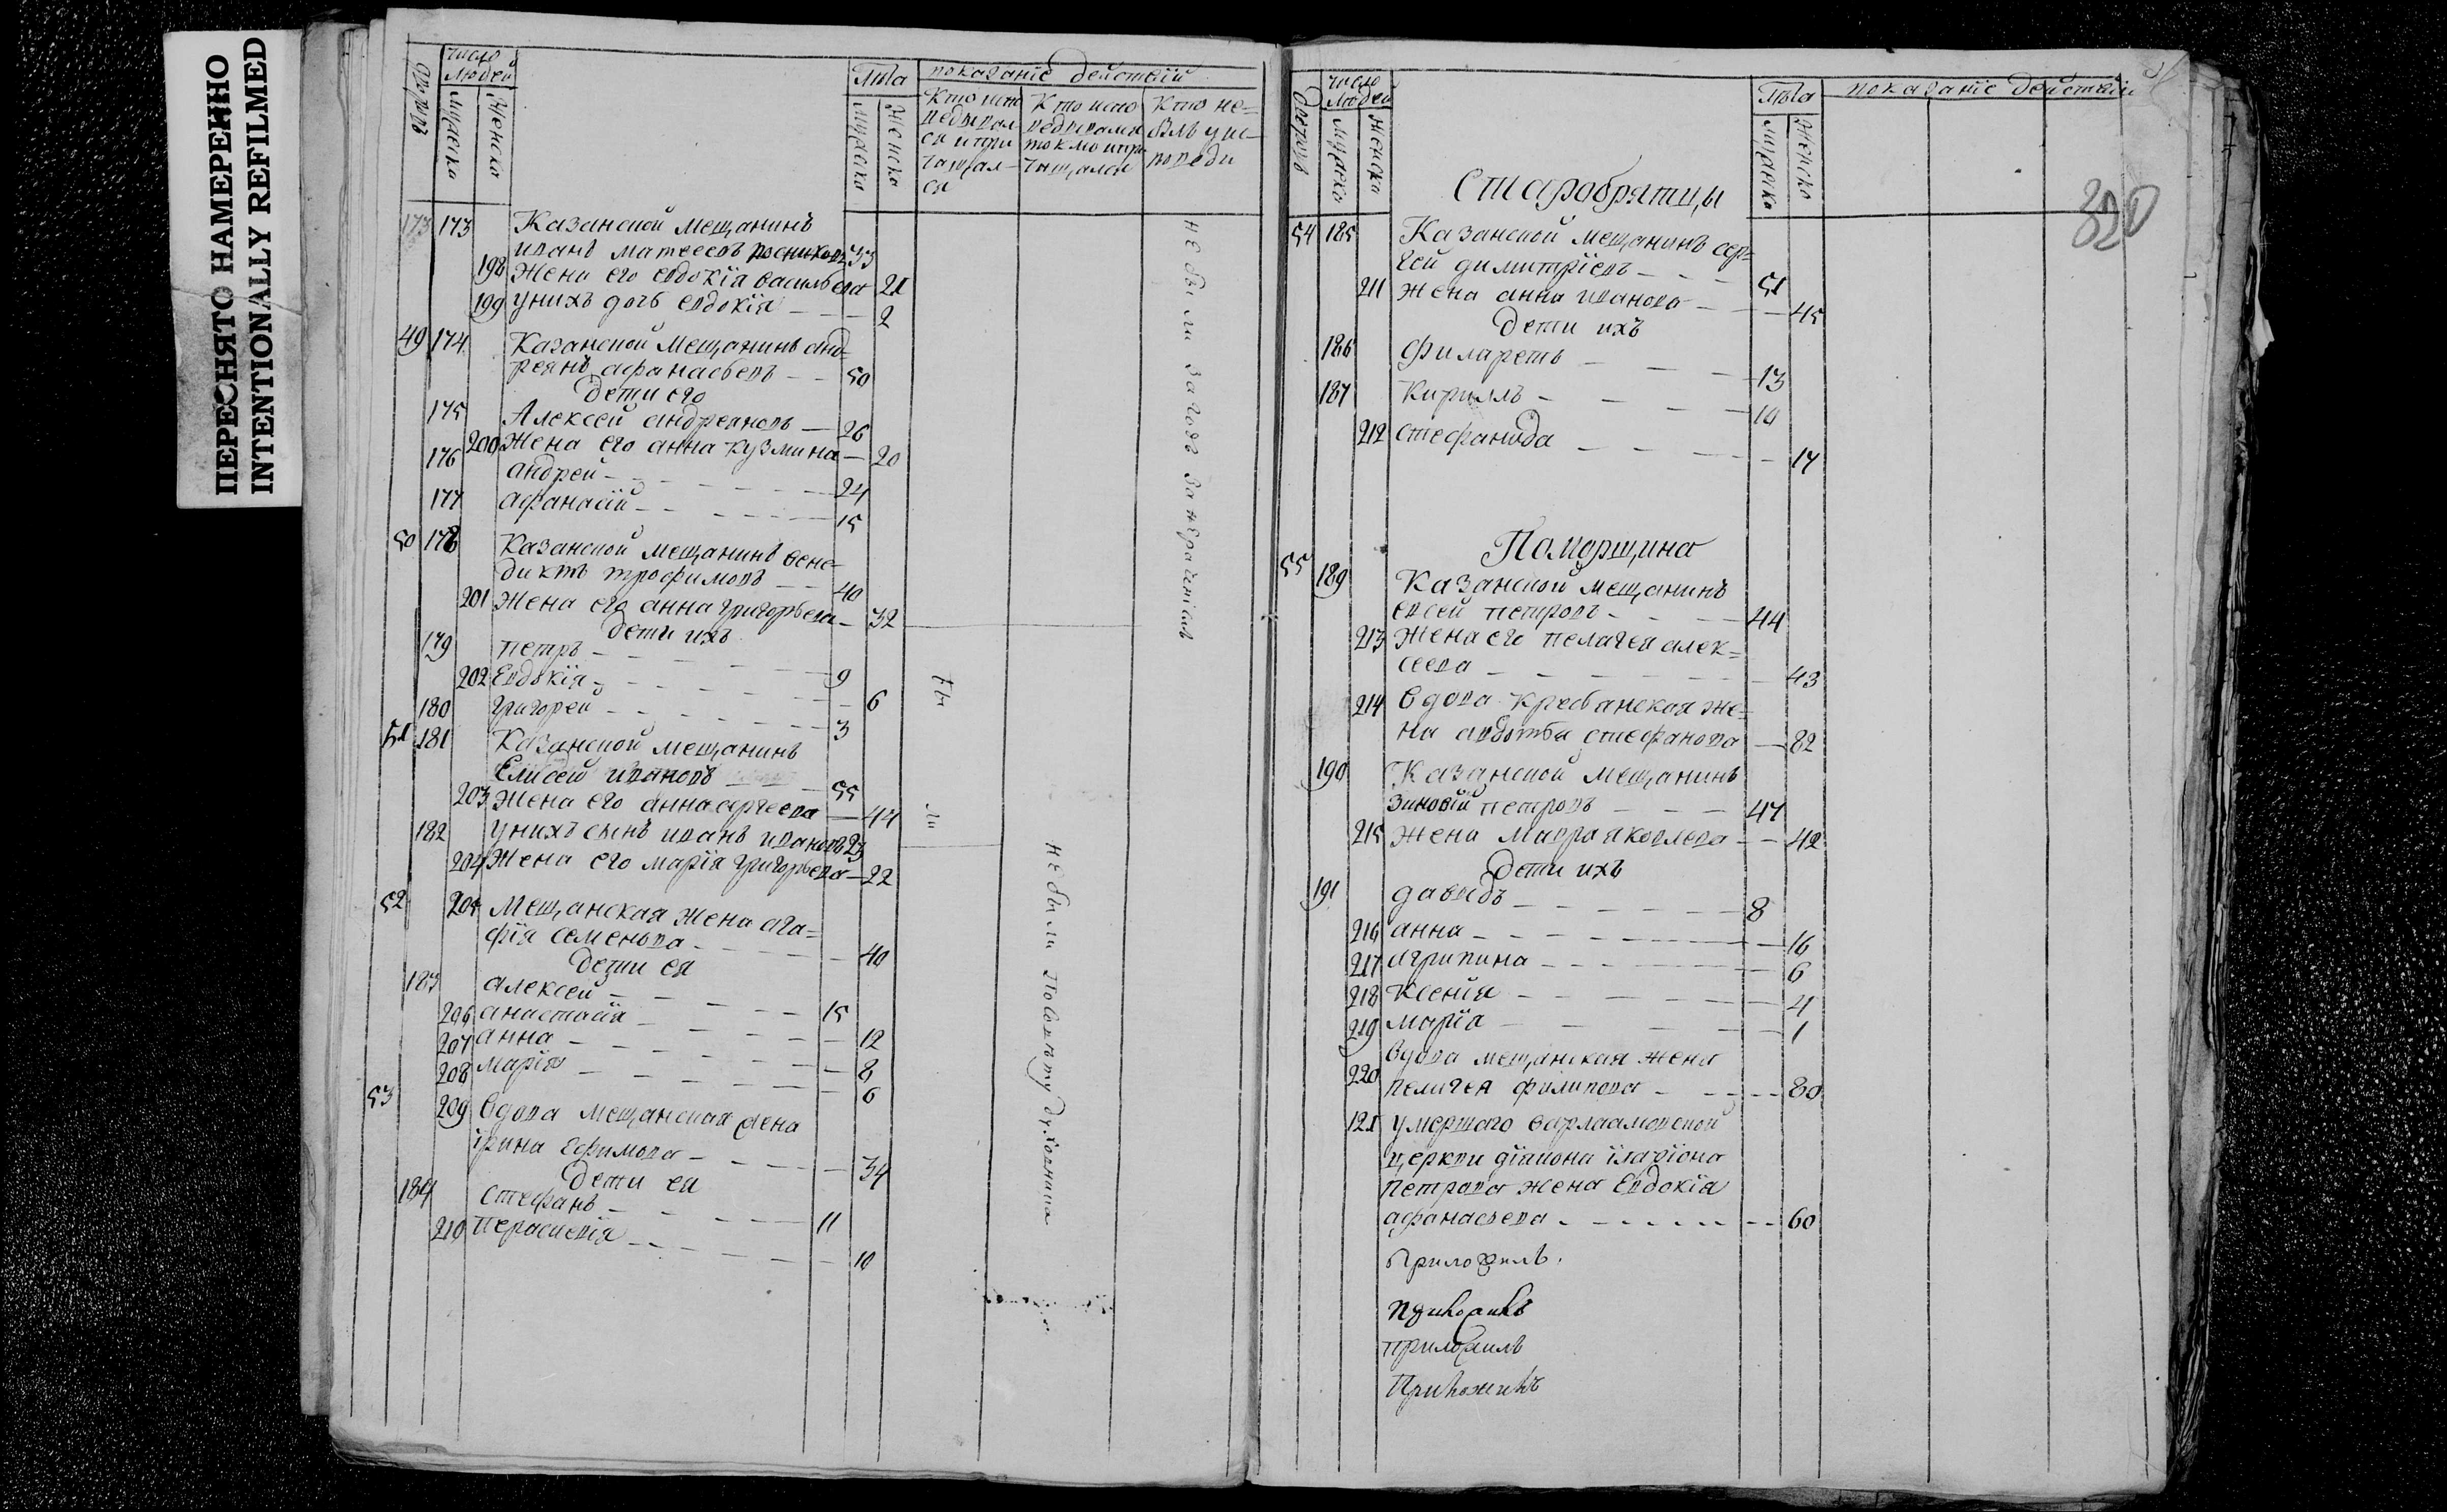 ПЕРЕСНЯТО НАМЕРЕННО
INTENTIONALLY REFILMED
число людей
Лѣта
показаніе действій
мужеска
женска
мужеска
женска
Кто испо
ведывал
ся и при
чащал
ся
Кто испо
ведывался
токмо и при
чащался
Кто не
былъ у ис
поведи
173 173 Казанской мещанинъ
иванъ матѳеевъ 33
198 Жена его евдокія васильева 21
199 у нихъ дочь евдокія 2
49 174 Казанской мещанинъ анд=
реянъ афанасьевъ 50
дети его
175 Алексей андреяновъ 26
200 Жена его анна кузмина 20
176 андрей 24
177 афанасій 15
50 178 Казанской мещанинъ вене=
диктъ трофимовъ 40
201 Жена его анна григорьева 32
дети ихъ
179 петръ 9
202 Евдокія 6
180 григорей 3
51 181 Казанской мещанинъ
Елисей ивановъ 55
203 Жена его анна сергеева 44
182 у нихъ сынъ иванъ ивановъ 23
204 Жена его марія григорьева 22
52 205 Мещанская жена ага=
фія семенова 40
дети ея
183 алексей 15
206 анастасія 12
207 анна 8
208 марія 6
53 209 Вдова мещанская жена
ірина Ефимова 34
дети ея
184 Стефанъ 11
210 Параскевія 10
не были за годъ за нерачениемъ
бы
ли
не были
число людей
Лѣта
показаніе действій
мужеска
женска
мужеска
женска
320
Старобрятцы
54 185 Казанской мещанинъ сер=
гей димитріевъ 51
211 жена анна иванова 45
дети ихъ
186 филаретъ 13
187 Кириллъ 10
212 стефанида 17
Поморщина
55 189 Казанской мещанинъ
евсей петровъ 44
213 Жена его пелагея алек=
сеева 43
214 Вдова Кресьянская же=
на авдотья стефанова 82
190 Казанской мещанинъ
зиновій петровъ 47
215 жена Мавра яковлева 42
дети ихъ
191 давыдъ 8
216 анна 16
217 агрипина 6
218 Ксенія 4
219 марія 1
Вдова мещанская жена
220 пелагея филипова 80
121 умершаго варлаамовской
церкви діакона іларіона
петрова жена Евдокія
афанасьева 60